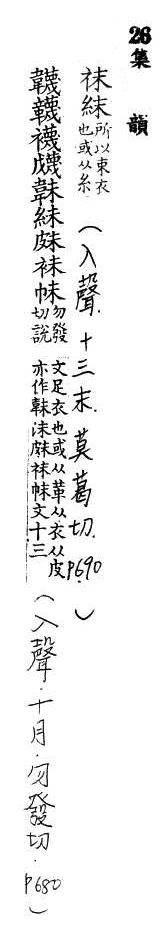 26集韻
袜䋞所以束衣也或从糸（入聲．十三末．莫葛切．P.690．）
韈韤襪𧝝韎絉䩋袜帓勿發切說文足衣也或从革从衣从皮亦作韎沫䩋袜帓文十三（入聲．十月．勿發切．P680）